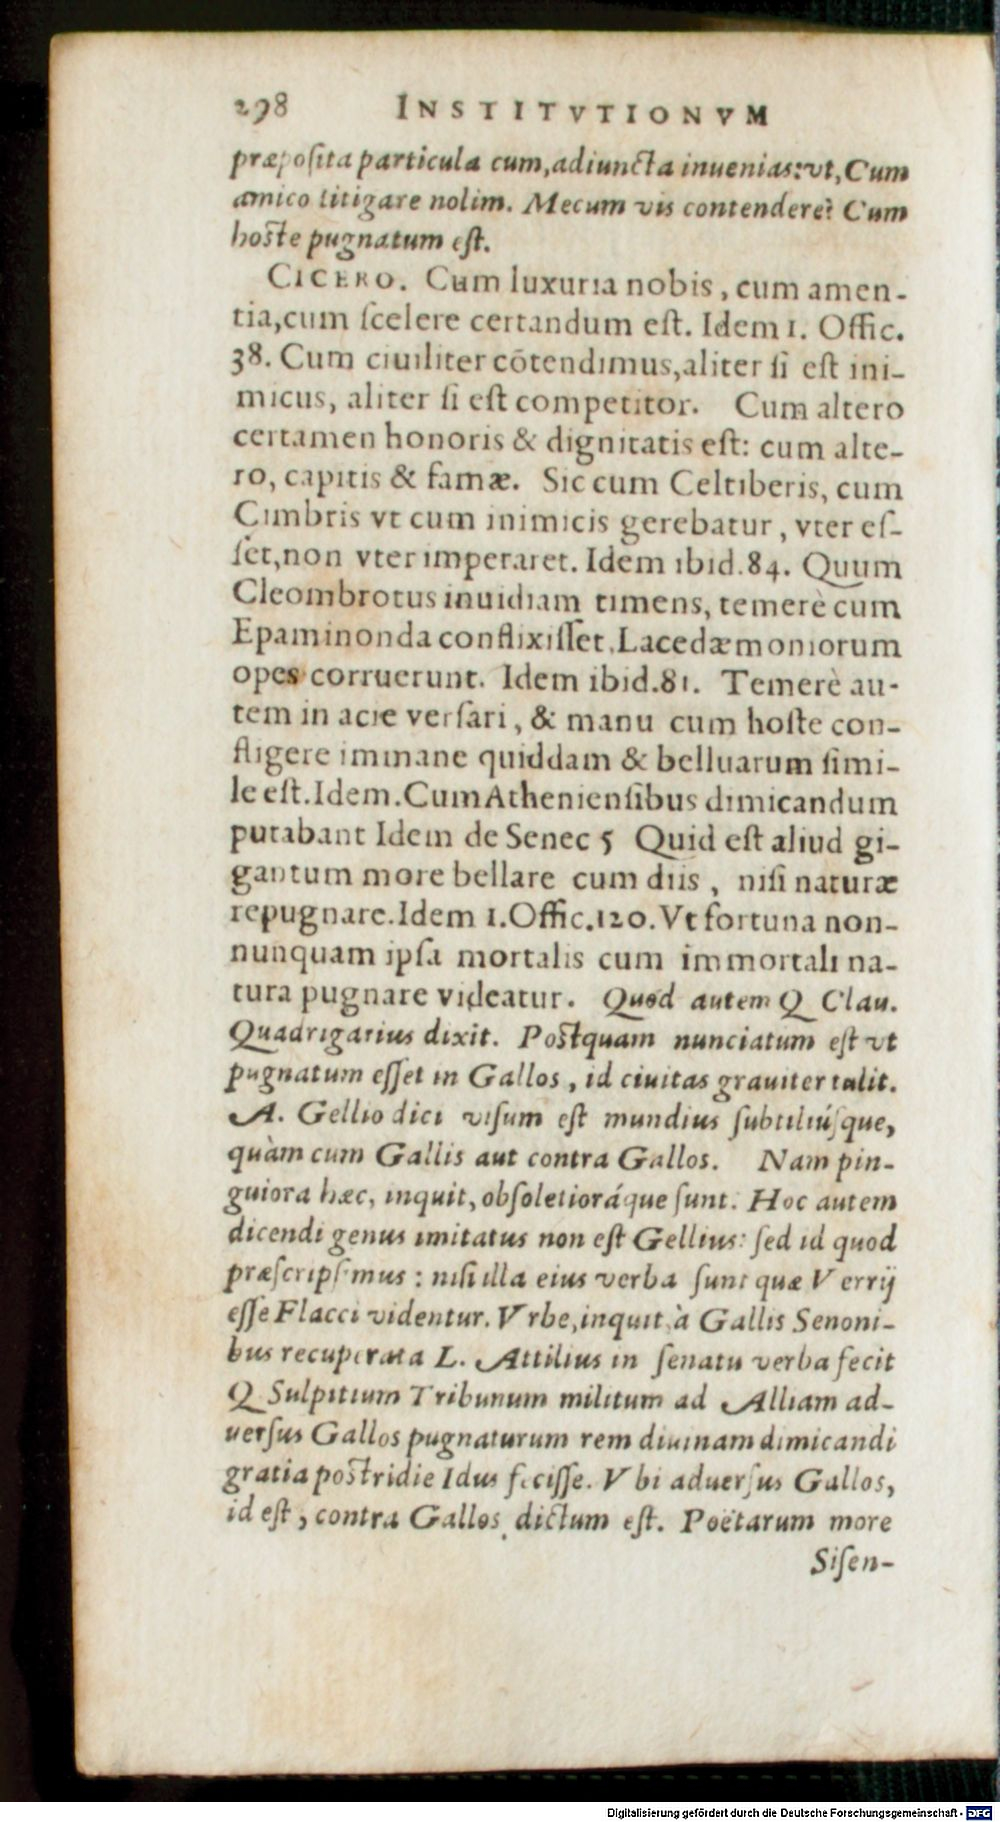 298 INSTITVTIONVM
præposita particula cum, adiuncta inuenias: vt, Cum
amico litigare nolim. Mecum vis contendere? Cum
hoste pugnatum est.
CICERO. Cum luxuria nobis, cum amen-
tia, cum scelere certandum est. Idem 1. Offic.
38. Cum ciuiliter cōtendimus, aliter si est ini-
micus, aliter si est competitor. Cum altero
certamen honoris & dignitatis est: cum alte-
ro, capitis & famæ. Sic cum Celtiberis, cum
Cimbris vt cum inimicis gerebatur, vter es-
set, non vter imperaret. Idem ibid. 84. Quum
Cleombrotus inuidiam timens, temerè cum
Epaminonda conflixisset, Lacedæmoniorum
opes corruerunt. Idem ibid. 81. Temerè au-
tem in acie versari, & manu cum hoste con-
fligere immane quiddam & belluarum simi-
le est. Idem. Cum Atheniensibus dimicandum
putabant Idem de Senec 5 Quid est aliud gi-
gantum more bellare cum diis, nisi naturæ
repugnare. Idem 1. Offic. 120. Vt fortuna non-
nunquam ipsa mortalis cum immortali na-
tura pugnare videatur. Quod autem Q Clau.
Quadrigarius dixit. Postquam nunciatum est vt
pugnatum esset in Gallos, id ciuitas grauiter tulit.
A. Gellio dici visum est mundius subtiliúsque,
quàm cum Gallis aut contra Gallos. Nam pin-
guiora hæc, inquit, obsoletioráque sunt. Hoc autem
dicendi genus imitatus non est Gellius: sed id quod
præscripsimus: nisi illa eius verba sunt quæ Verrij
esse Flacci videntur. Vrbe, inquit, à Gallis Senoni-
bus recuperata L. Attilius in senatu verba fecit
Q Sulpitium Tribunum militum ad Alliam ad-
uersus Gallos pugnaturum rem diuinam dimicandi
gratia postridie Idus fecisse. Vbi aduersus Gallos,
id est, contra Gallos dictum est. Poëtarum more
Sisen-
Digitalisierung gefördert durch die Deutsche Forschungsgemeinschaft - DFG